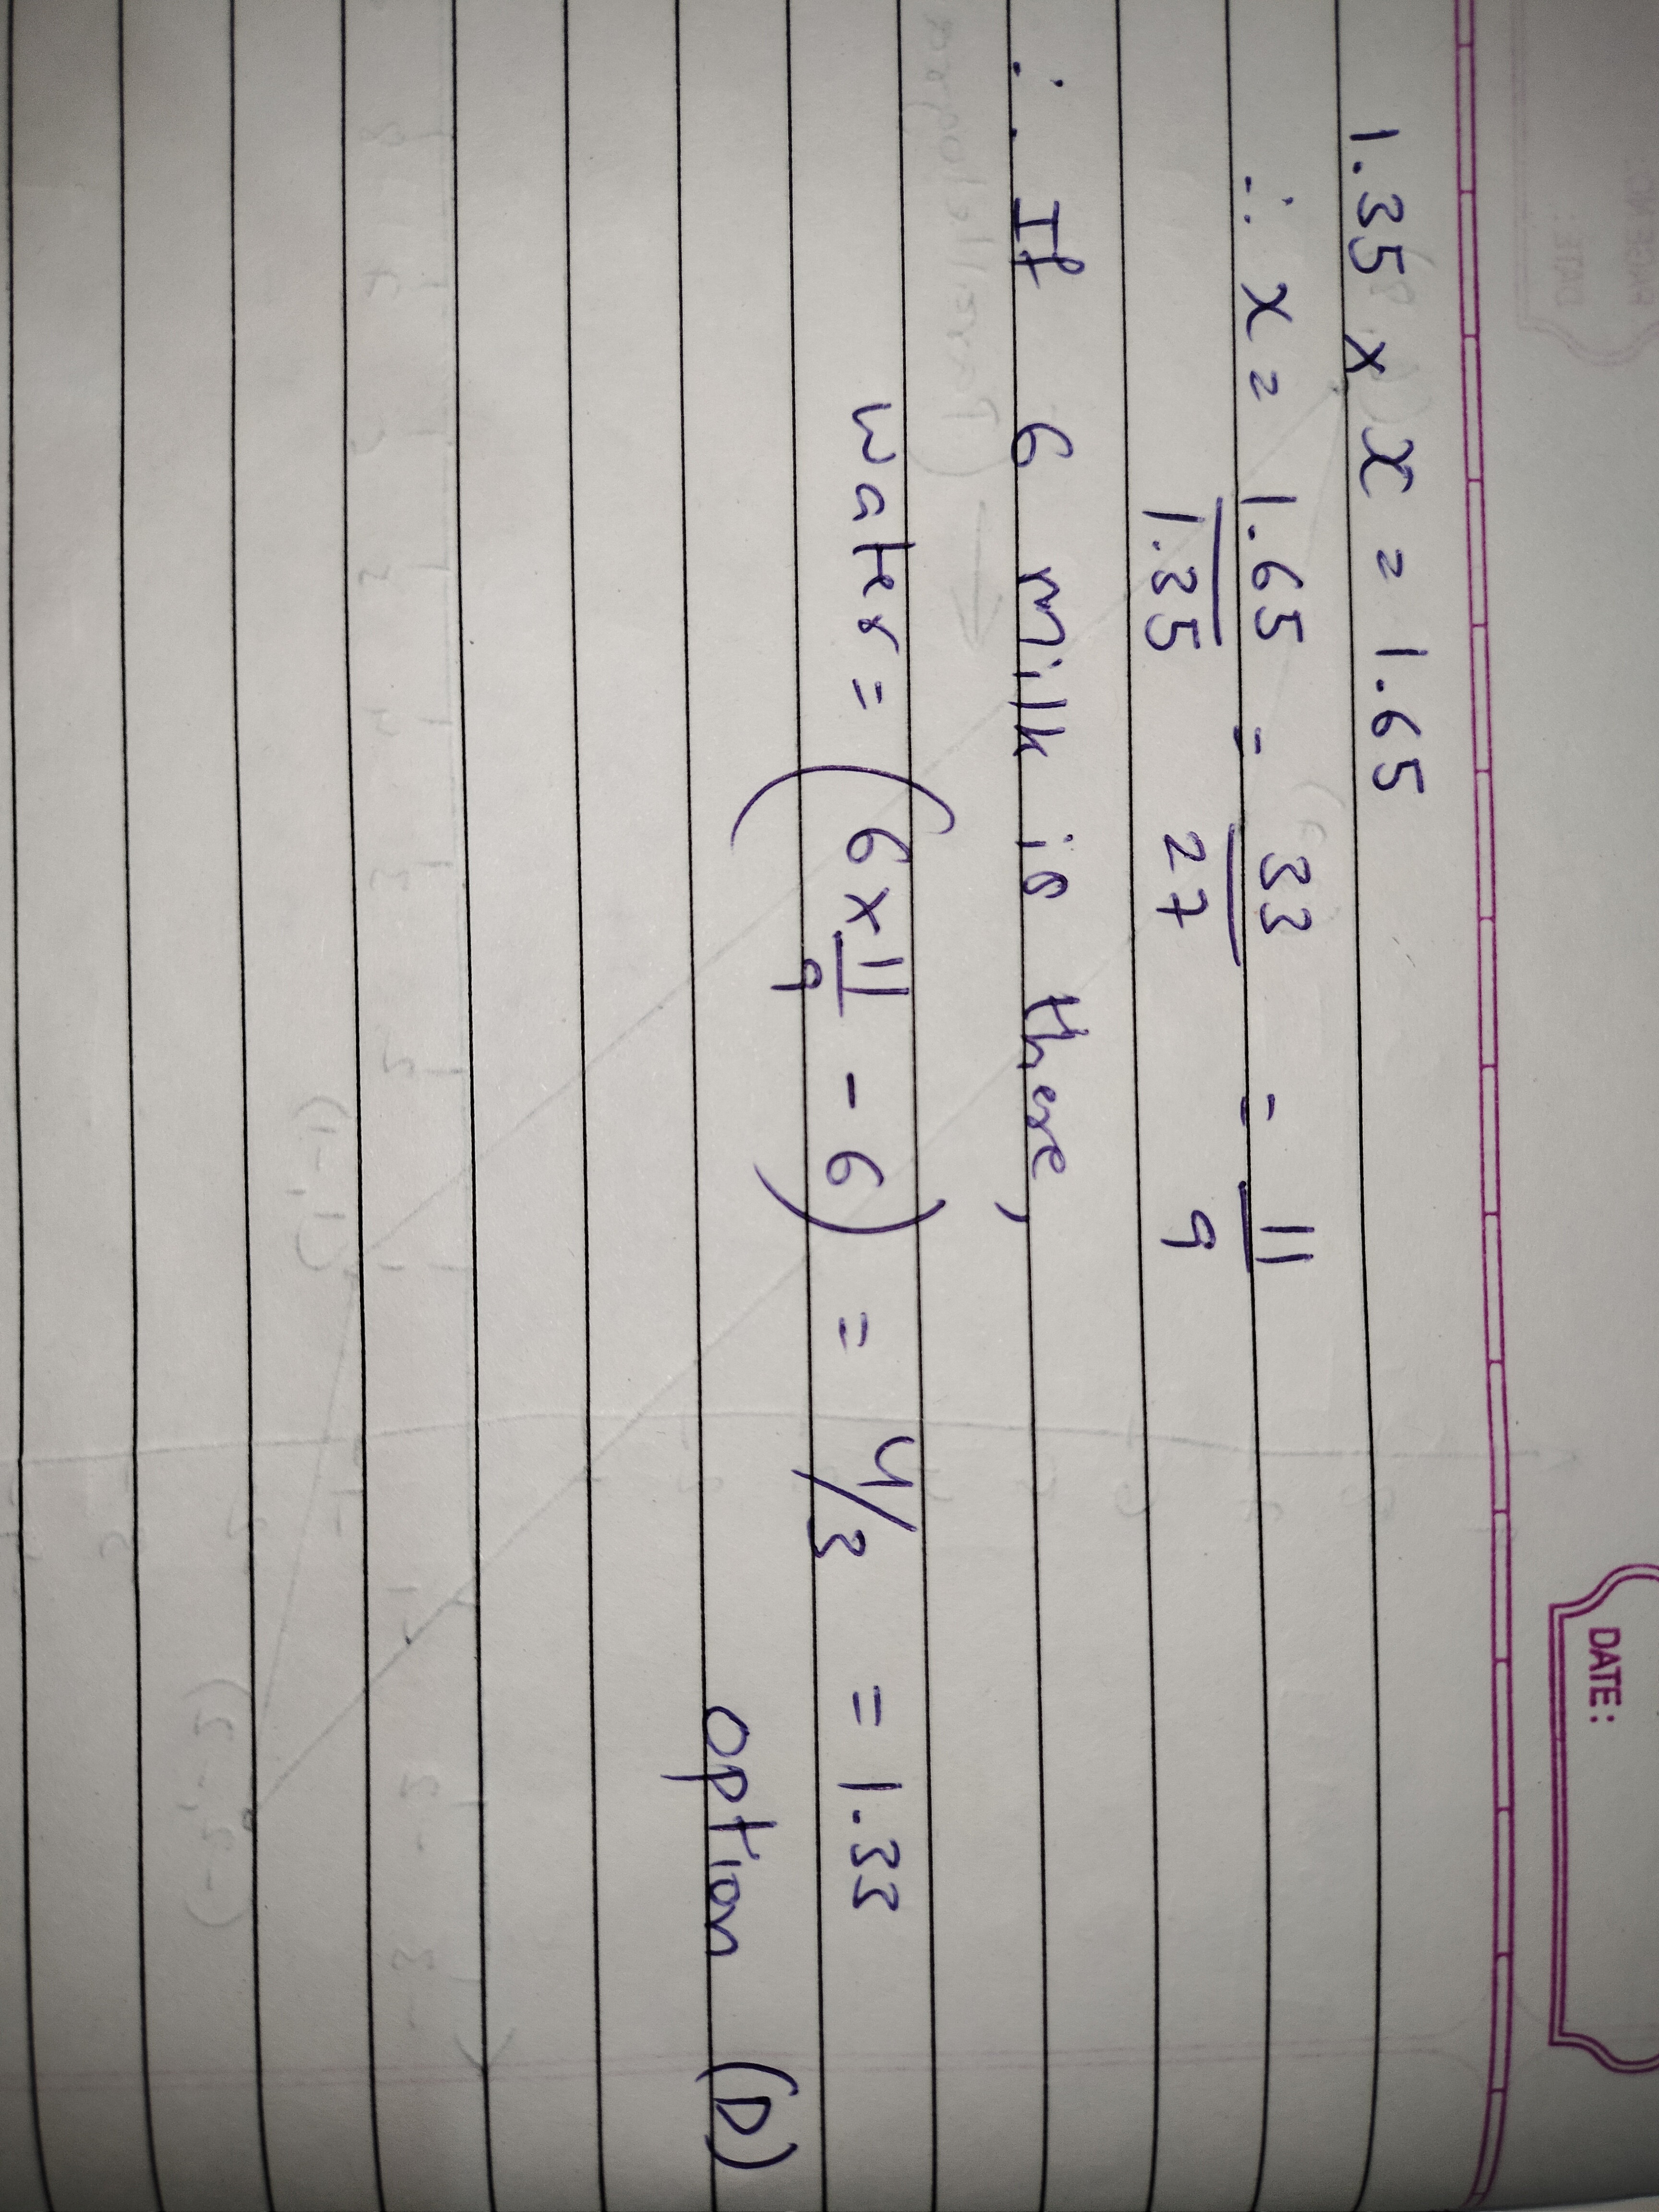 DATE:
1.35 × x = 1.65
∴ x = 1.65/1.35 = 33/27 = 11/9
∴ If 6 milk is there,
water = (6×11/9 - 6) = 4/3 = 1.33
option (D)